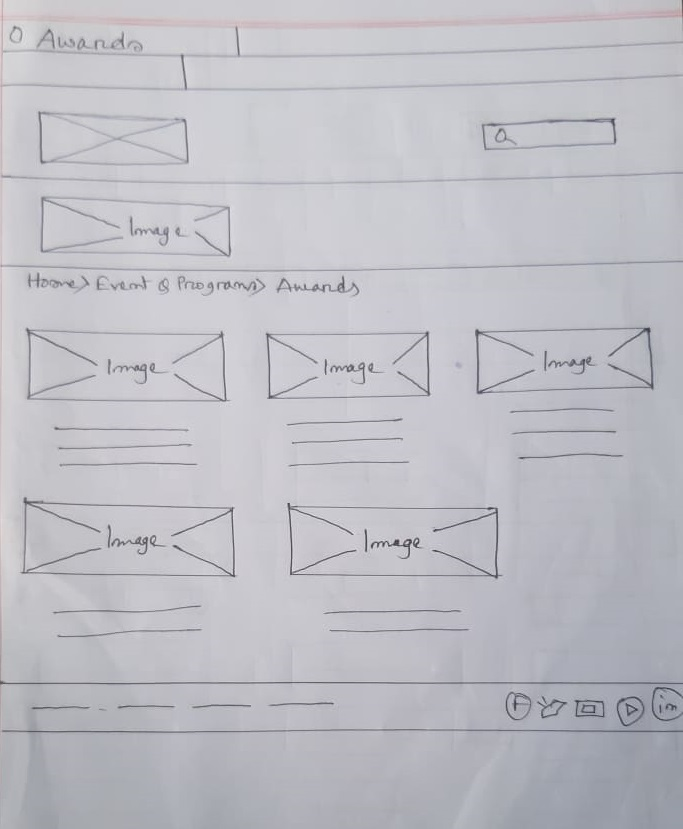 O Awards
Image
Home> Event & Programs> Awards
Image Image Image
Image Image
F in